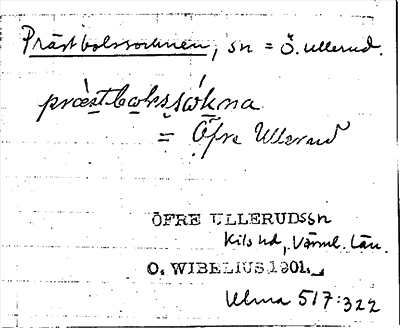 Prästbolssocknen, sn = Ö. Ullerud.
præstbolssókna
= Öfre Ullerud
ÖFRE ULLERUDSsn
Kils hd, Värml. län.
O. WIBELIUS 1901.
Ulma 517:322